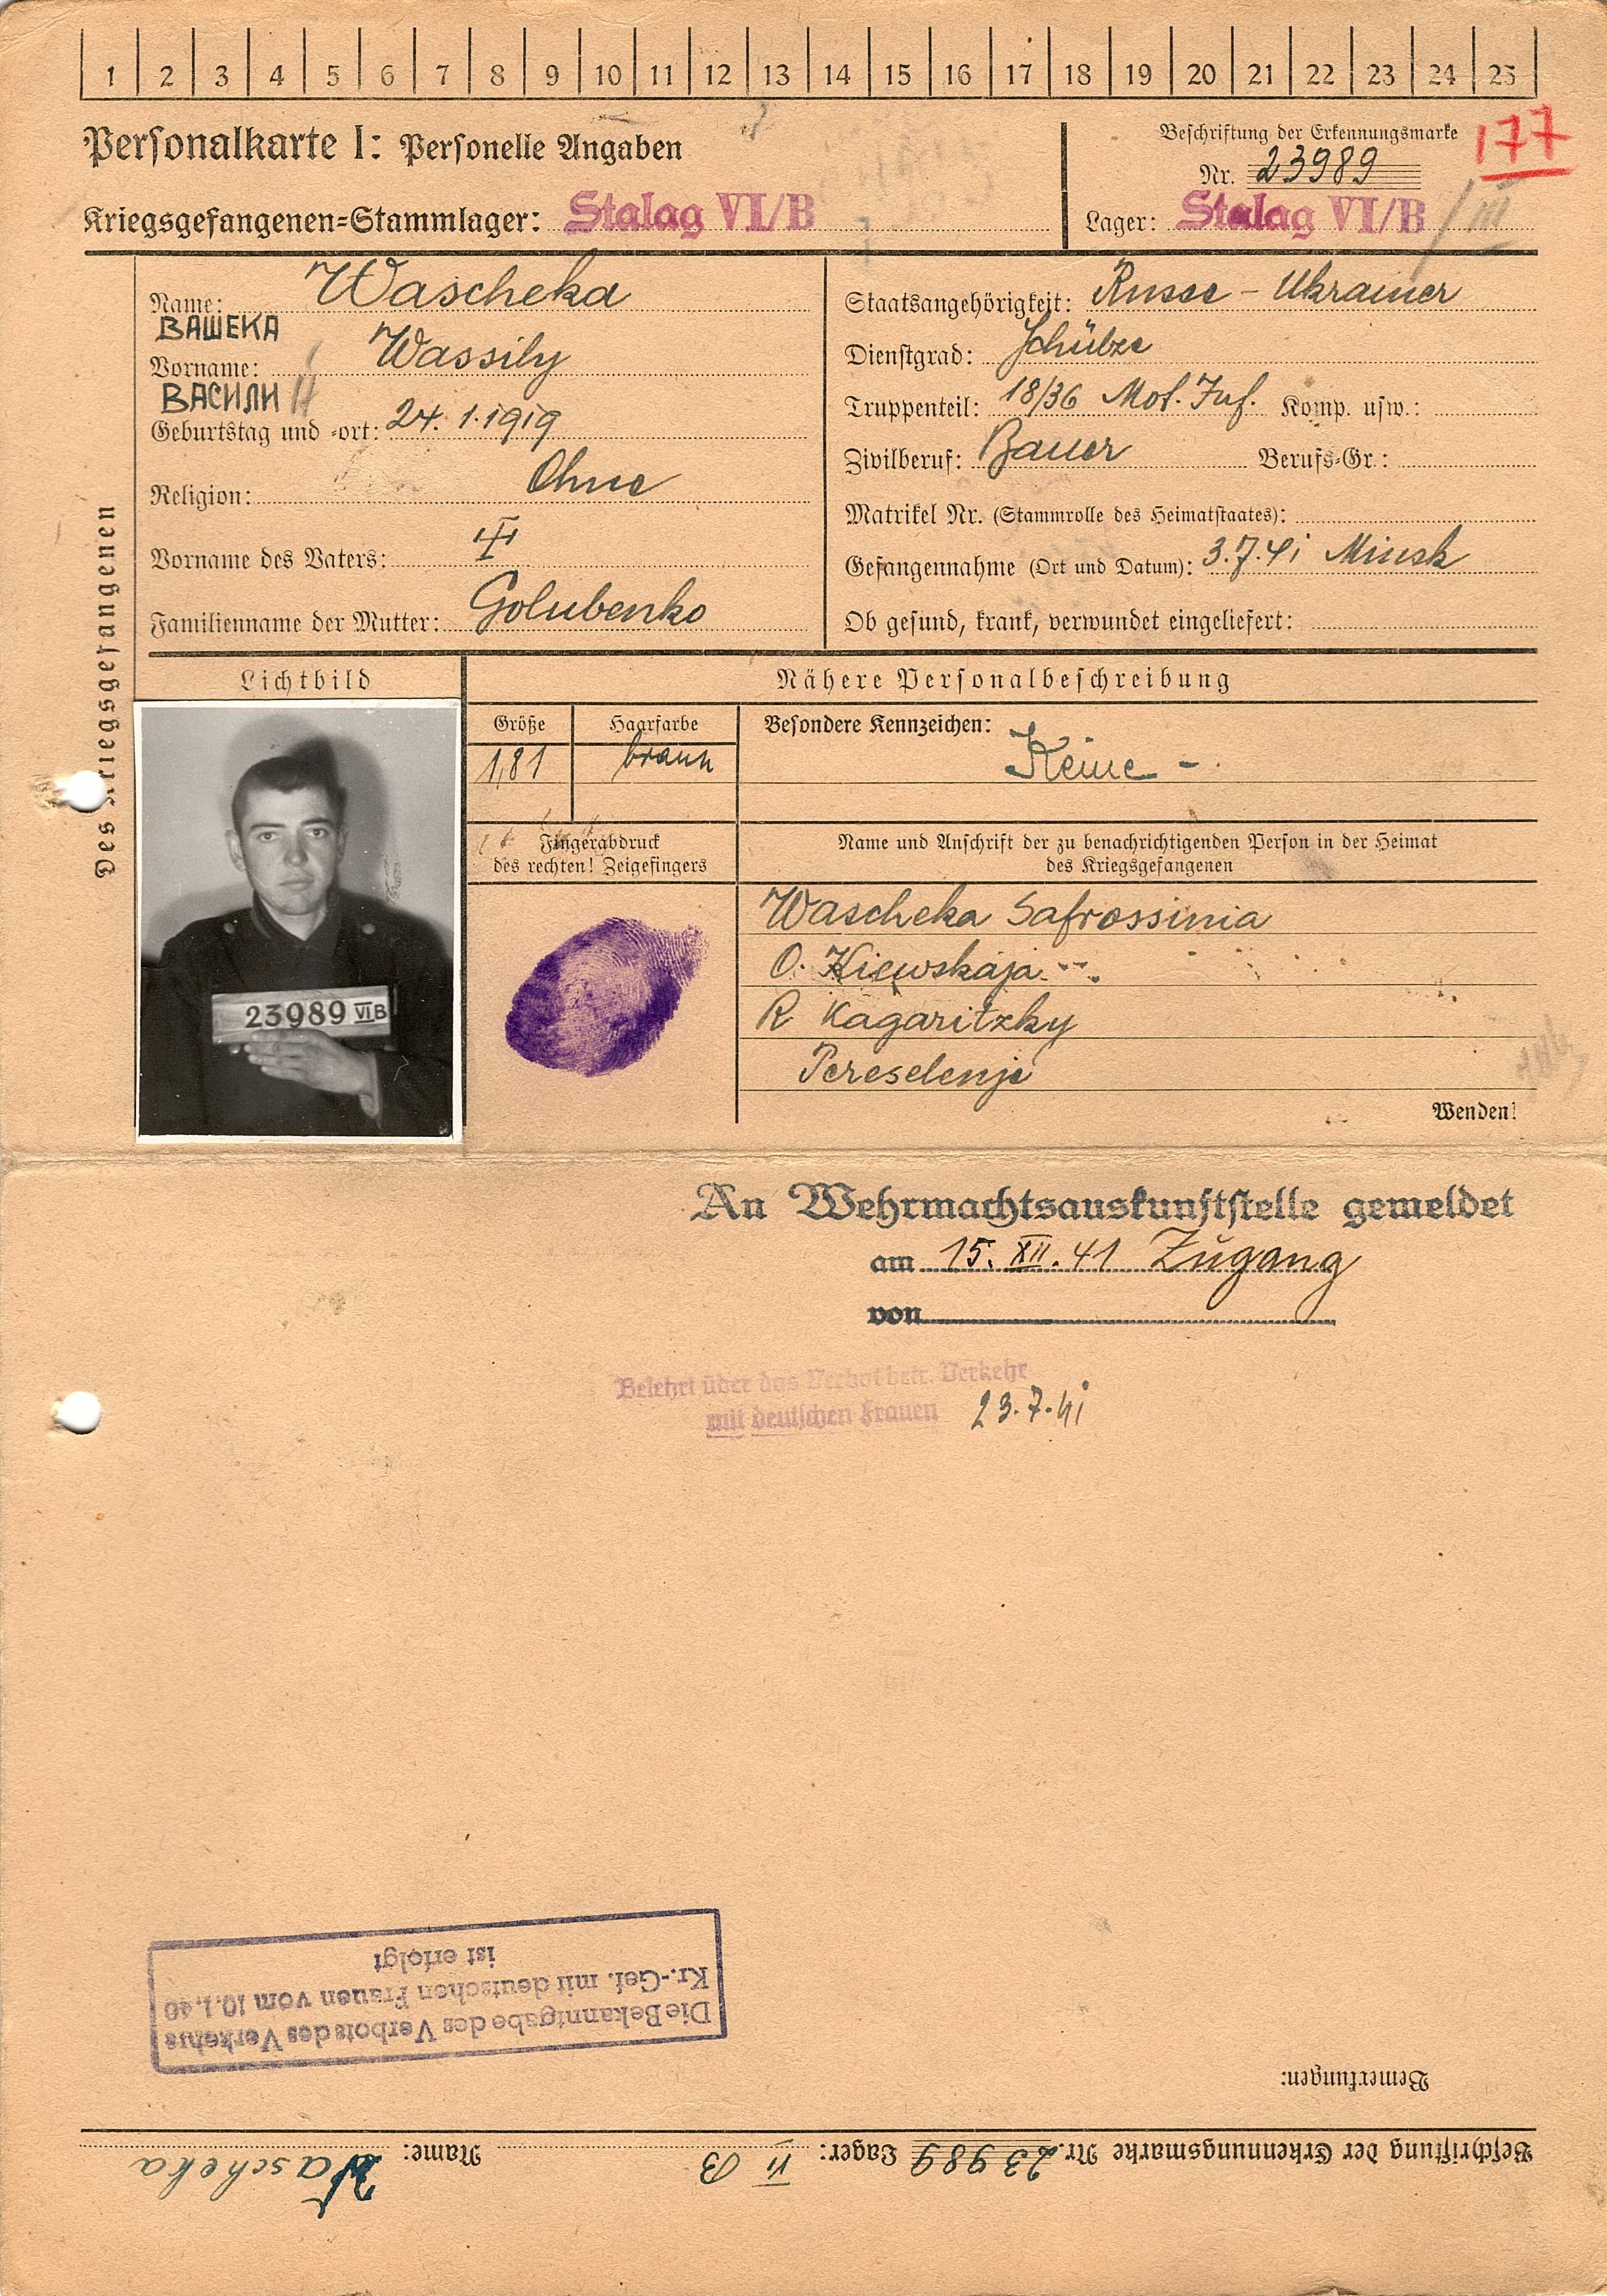 1 2 3 4 5 6 7 8 9 10 11 12 13 14 15 16 17 18 19 20 21 22 23 24 25
Personalkarte I: Personelle Angaben
Kriegsgefangenen-Stammlager: Stalag VI/B
Beschriftung der Erkennungsmarke
Nr. 23989
177
Lager: Stalag VI/B / III
Des Kriegsgefangenen
Name: Wascheka
ВАШЕКА
Vorname: Wassily
ВАСИЛИ Й
Geburtstag und -ort: 24.1.1919
Religion: Ohne
Vorname des Vaters:
Familienname der Mutter: Golubenko
Staatsangehörigkeit: Russe - Ukrainer
Dienstgrad: Schütze
Truppenteil: 18/36 Mot. Inf. Komp. usw.:
Zivilberuf: Bauer Berufs-Gr.:
Matrikel Nr. (Stammrolle des Heimatstaates):
Gefangennahme (Ort und Datum): 3.7.41 Minsk
Ob gesund, krank, verwundet eingeliefert:
Lichtbild
Nähere Personalbeschreibung
Größe Haarfarbe Besondere Kennzeichen: Keine -
1,81 braun
Fingerabdruck
des rechten! Zeigefingers
Name und Anschrift der zu benachrichtigenden Person in der Heimat
des Kriegsgefangenen
Wascheka Safrossinia
O. Kiewskaja
R Kagaritzky
Pereselenje
23989 VIB
Wenden!
An Wehrmachtsauskunftstelle gemeldet
am 15. XII. 41 Zugang
von
Belehrt über das Verbot betr. Verkehr
mit deutschen Frauen 23.7.41
Die Bekanntgabe des Verbots des Verkehrs
Kr.-Gef. mit deutschen Frauen vom 10.1.40
ist erfolgt
Bemerkungen:
Beschriftung der Erkennungsmarke Nr. 23989 Lager: VI B Name: Wascheka